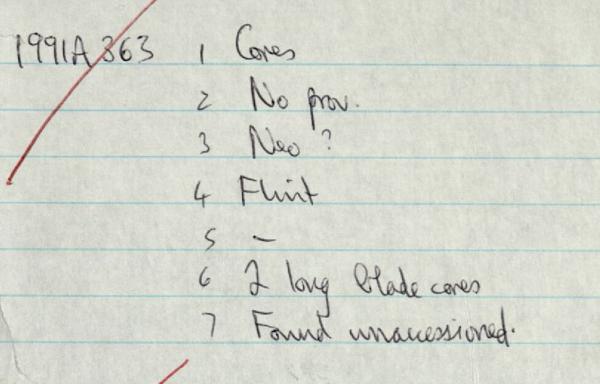 1991A 363 1 Cores
2 No prov.
3 Neo ?
4 Flint
5 –
6 2 long blade cores
7 Found unaccessioned.